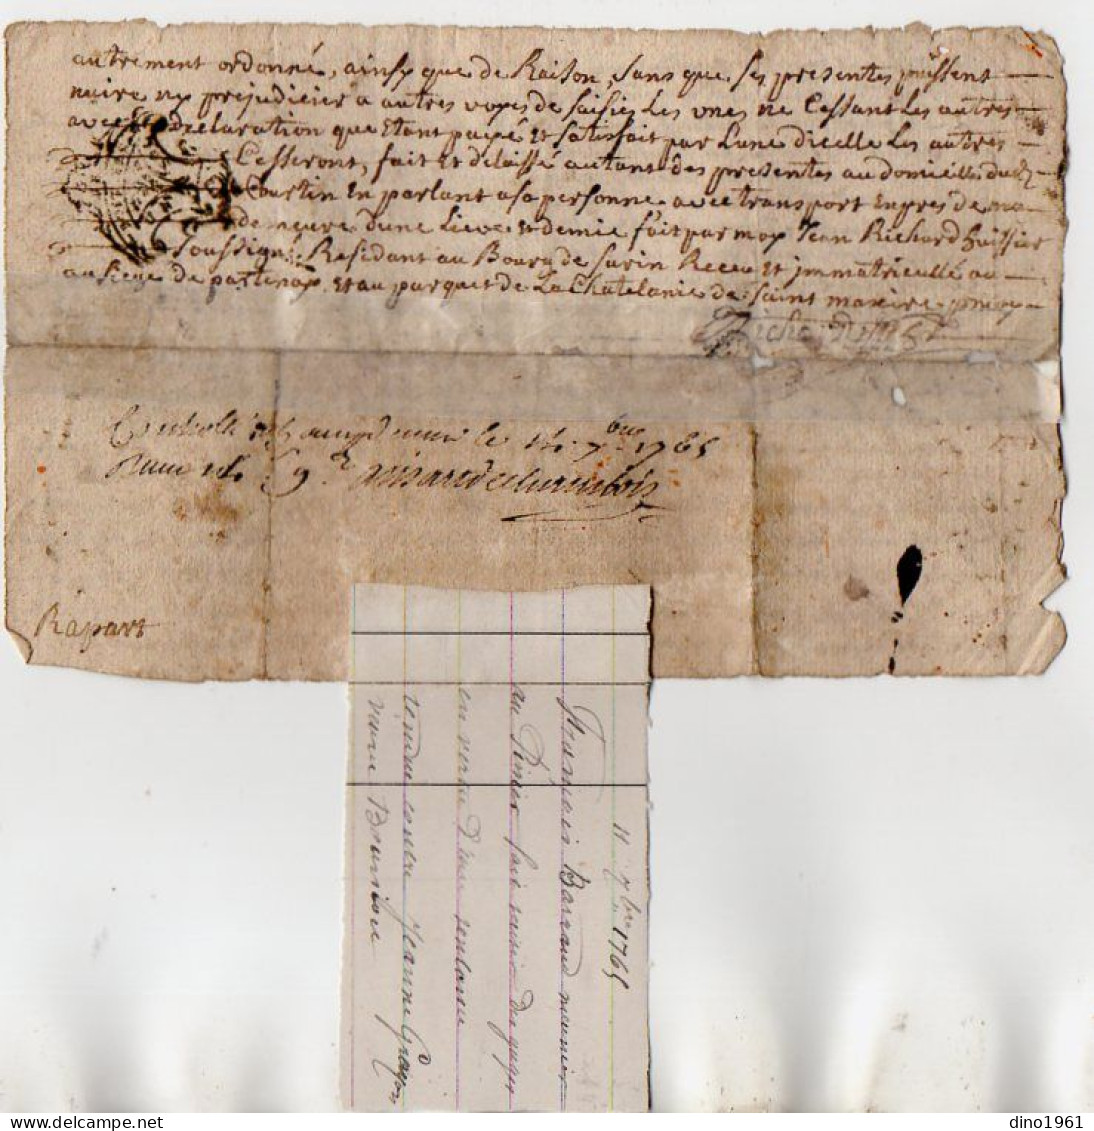 autrement ordonné, ainsy que de Raison, sans que ses presentes puissent
nuire ny prejudicier a autres voyes de saisies Les unes ne Cessant Les autres
avec declaration que Etant payé et satisfait par Lune dicelle Les autres
Cesseront, fait et delaissé autant des presentes au domicille dud
Coustin En parlant asa personne avec transport Enpres de ma
demeure dune Lieue et demie fait par moy Jean Richard huissier
soussigné Residant au Bourg de surin Receu et jmmatriculle au
siege de partenay et au parquet de La Chatelanie de saint maxire
Richard
Controllé a champdenier le 14 7bre 1765
Rapart
11 7bre 1765
Barraud meunier
au Pinier fait saisir des gages
en vertu d'une sentence
rendue contre Jeanne
veuve
dino1961